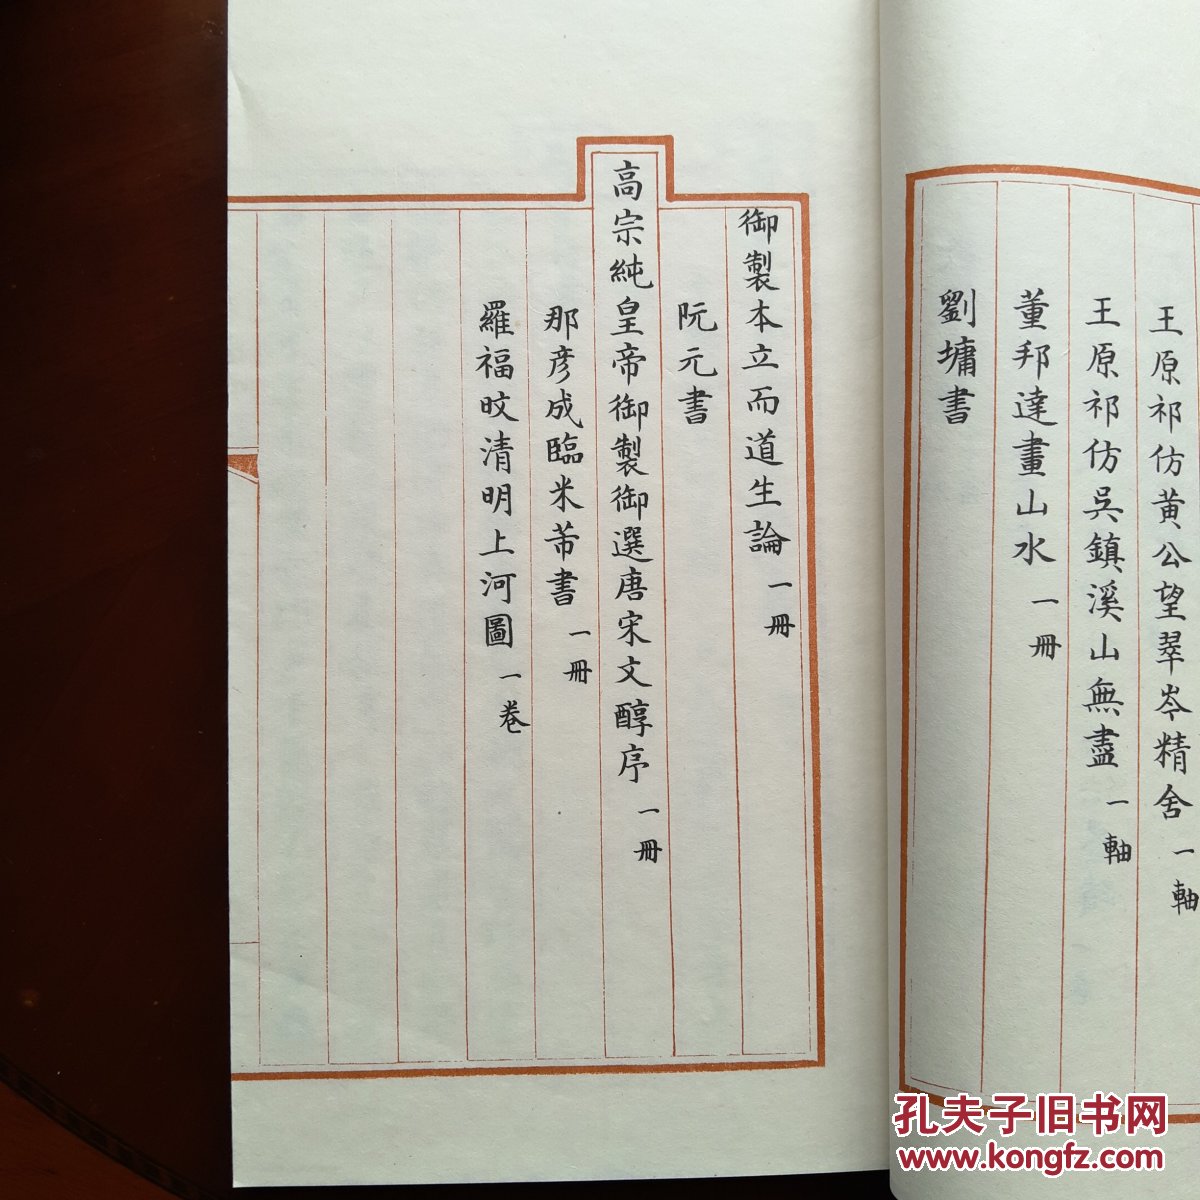 王原祁仿黄公望翠岑精舍一軸
王原祁仿吳鎮溪山無盡一軸
董邦達畫山水一冊
劉墉書
御製本立而道生論一冊
阮元書
高宗純皇帝御製御選唐宋文醇序一冊
那彦成臨米芾書一冊
羅福旼清明上河圖一卷
孔夫子旧书网
www.kongfz.com